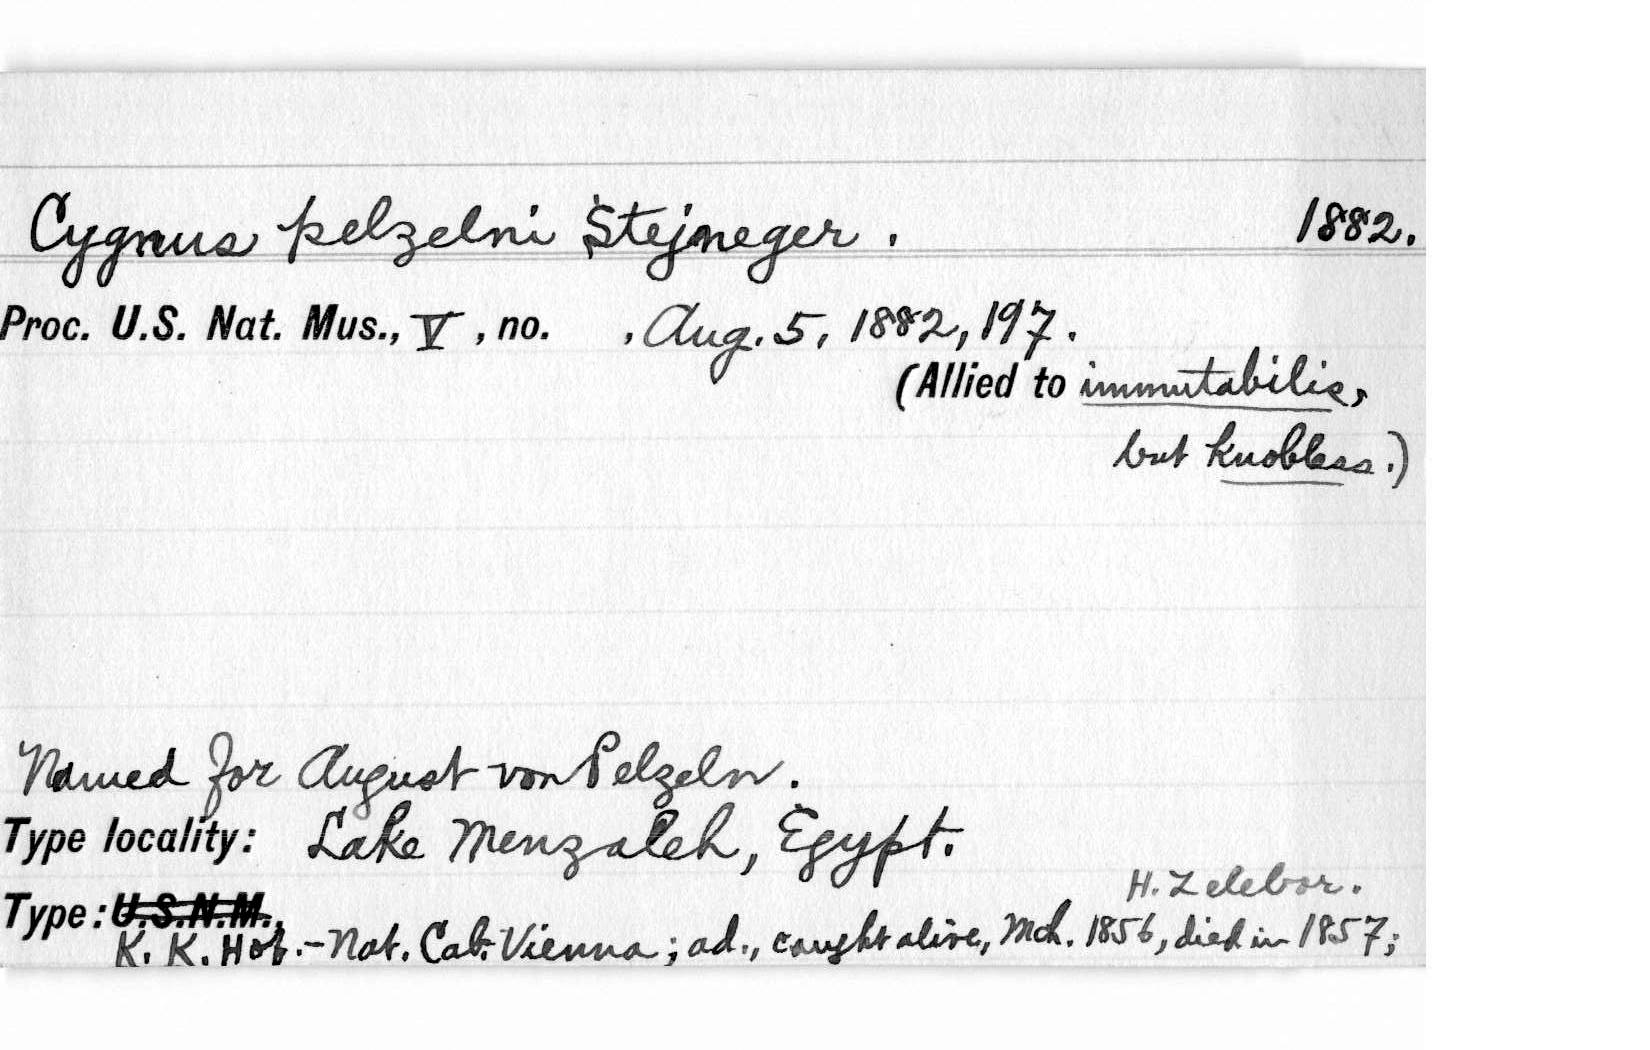 Cygnus pelzelni Stejneger. 1882.
Proc. U.S. Nat. Mus., V, no. , Aug. 5, 1882, 197.
(Allied to immutabilis,
but knobless.)
Named for August von Pelzeln.
Type locality: Lake Menzaleh, Egypt.
H. Zelebor.
Type: U.S.N.M.,
K. K. Hof.-Nat. Cab. Vienna; ad., caught alive, Mch. 1856, died in 1857;